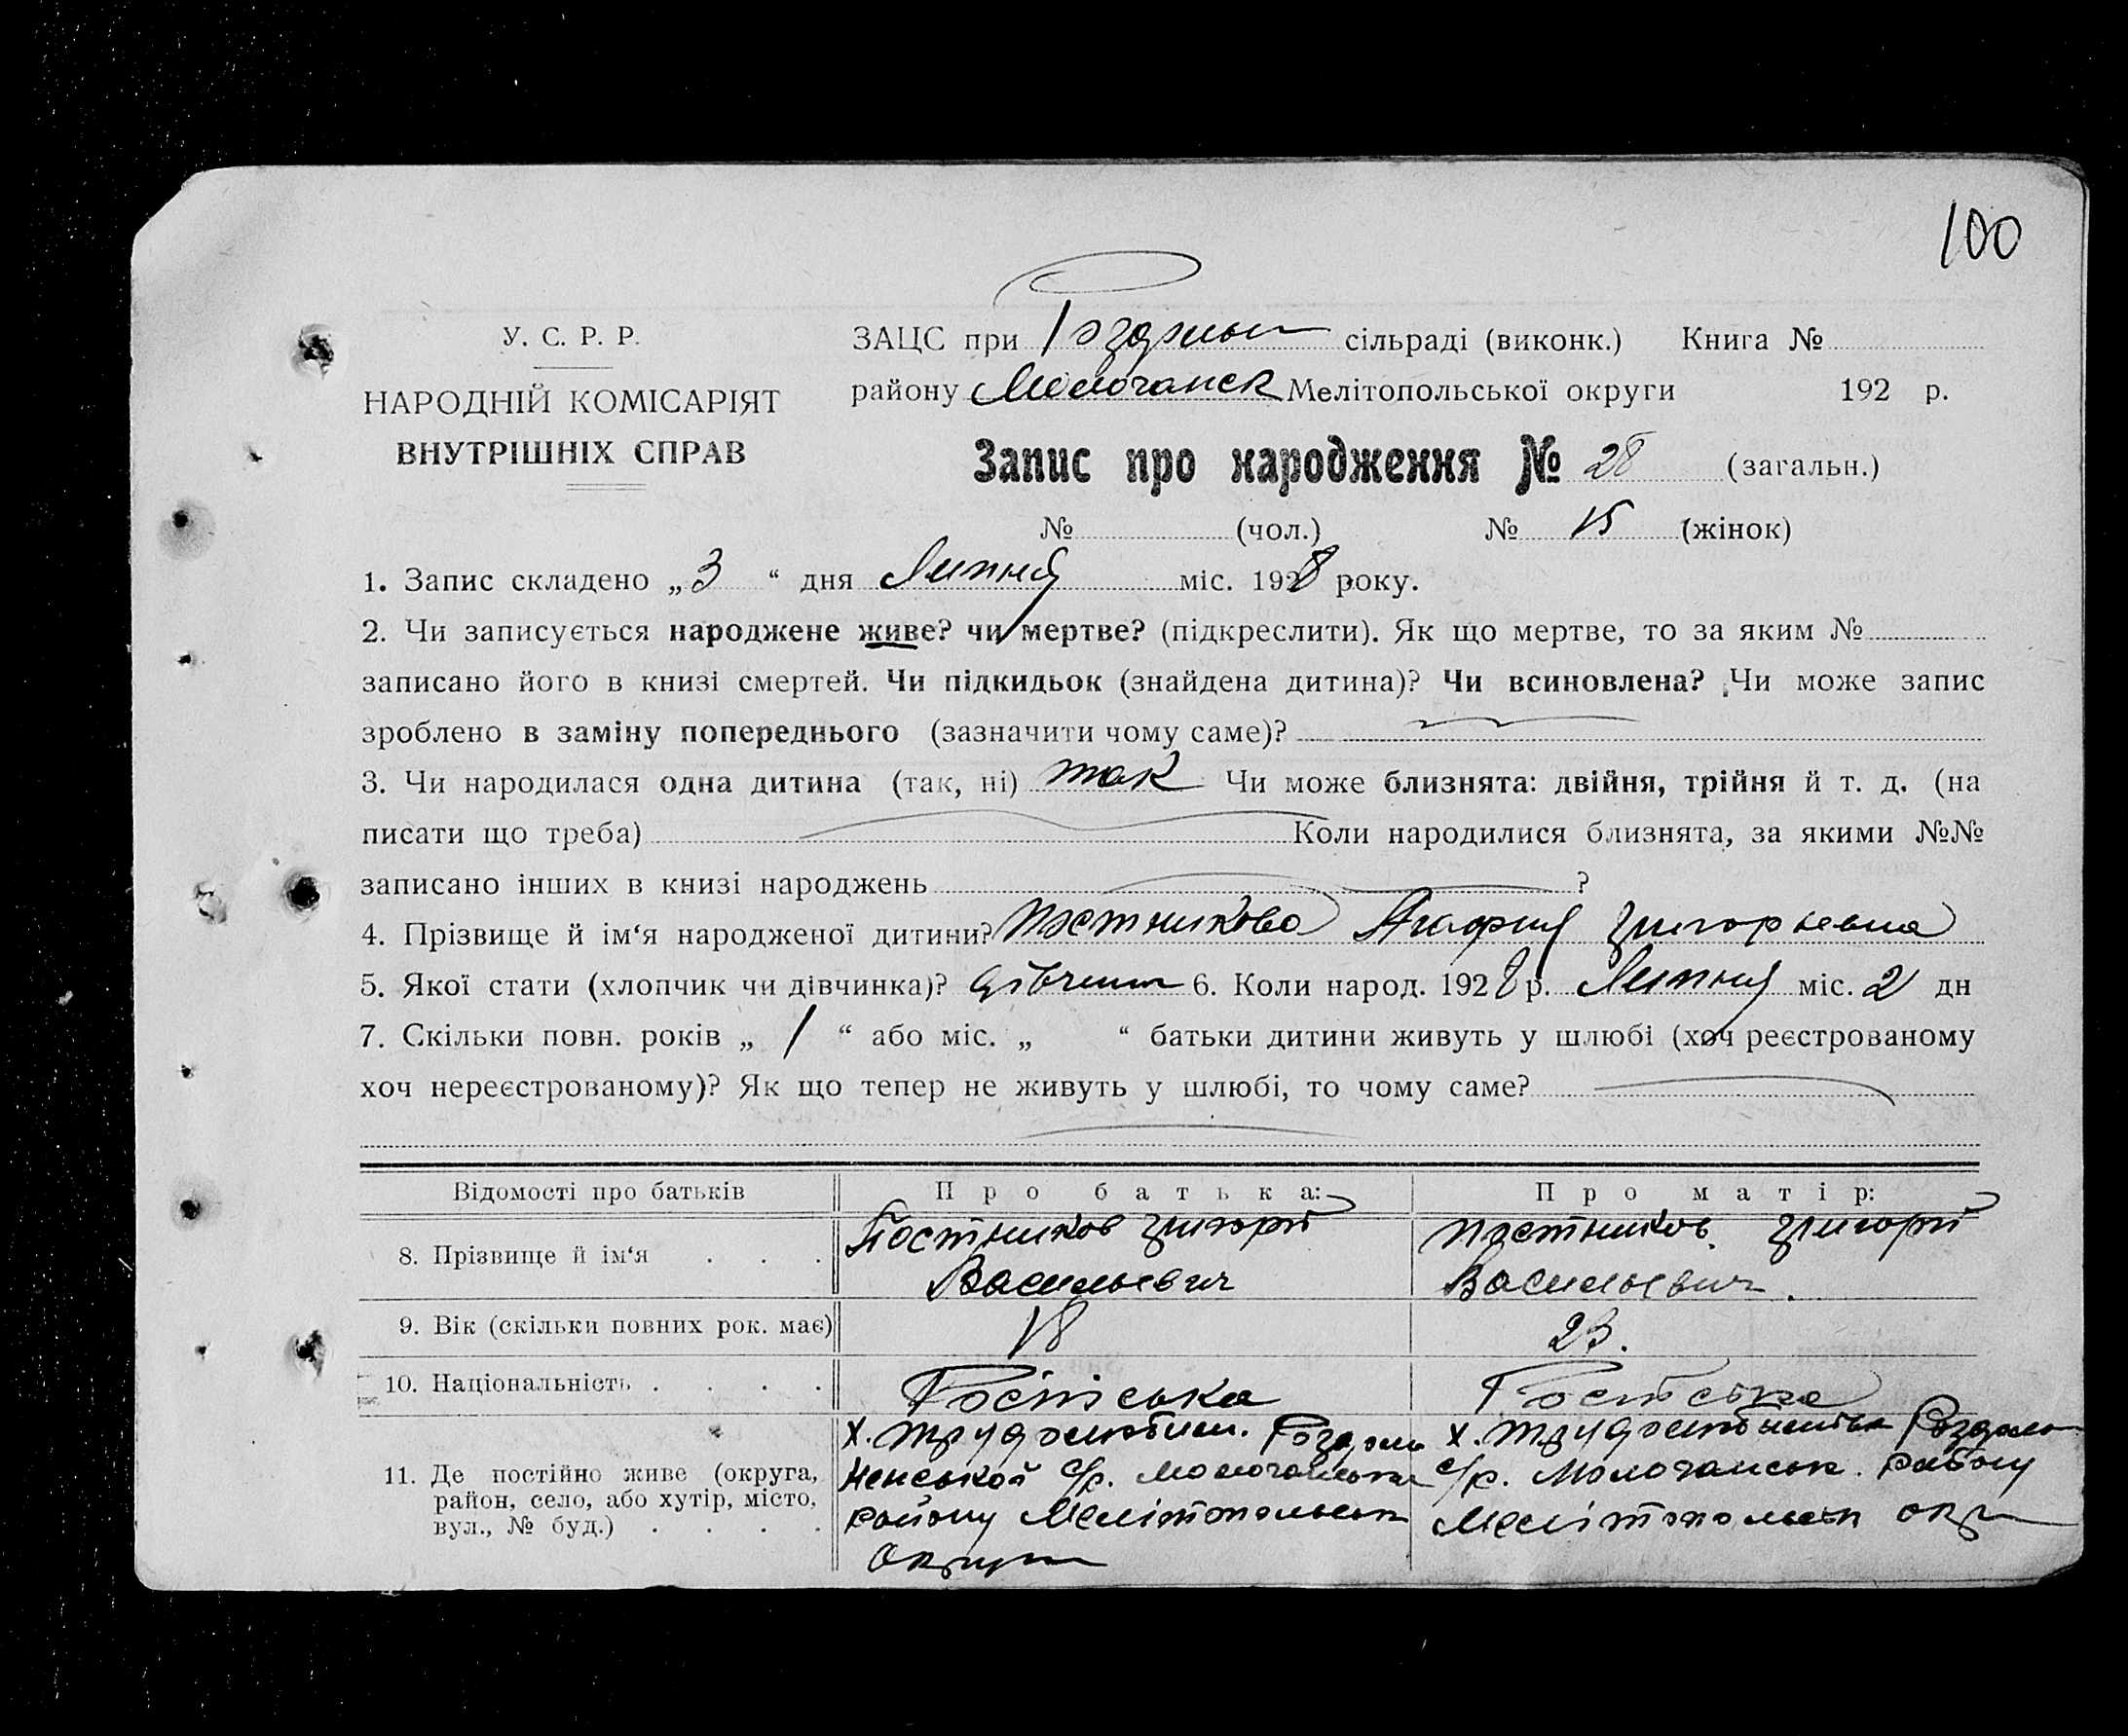 100
У. С. Р. Р.
НАРОДНІЙ КОМІСАРІЯТ
ВНУТРІШНІХ СПРАВ
ЗАЦС при сільраді (виконк.) Книга №
району Молочанск Мелітопольської округи 192 р.
Запис про народження № 28 (загальн.)
№ (чол.) № 15 (жінок)
1. Запис складено „3“ дня Липня міс. 1928 року.
2. Чи записується народжене живе? чи мертве? (підкреслити). Як що мертве, то за яким №
записано його в книзі смертей. Чи підкидьок (знайдена дитина)? Чи всиновлена? Чи може запис
зроблено в заміну попереднього (зазначити чому саме)?
3. Чи народилася одна дитина (так, ні) так Чи може близнята: двійня, трійня й т. д. (на
писати що треба) Коли народилися близнята, за якими №№
записано інших в книзі народжень ?
4. Прізвище й ім‘я народженої дитини? Постникова Агафия Григорьевна
5. Якої стати (хлопчик чи дівчинка)? дівчин 6. Коли народ. 1928 р. Липня міс. 2 дн
7. Скільки повн. років „ 1 “ або міс. „ “ батьки дитини живуть у шлюбі (хоч реєстрованому
хоч нереєстрованому)? Як що тепер не живуть у шлюбі, то чому саме?
Відомості про батьків Про батька: Про матір:
8. Прізвище й ім‘я . . . Постников Григорій Постников Григорій
Васильевич Васильевич.
9. Вік (скільки повних рок. має) 18 23.
10. Національність . . . . Російська Російська
11. Де постійно живе (округа, район, село, або хутір, місто, вул., № буд.) . . . .
х. Трудолюбим. Роздоль
ненськой с/р. Молочанська
району Мелітопольськ
округи
х. с/р. Молочанськ. району
Мелітопольськ окр